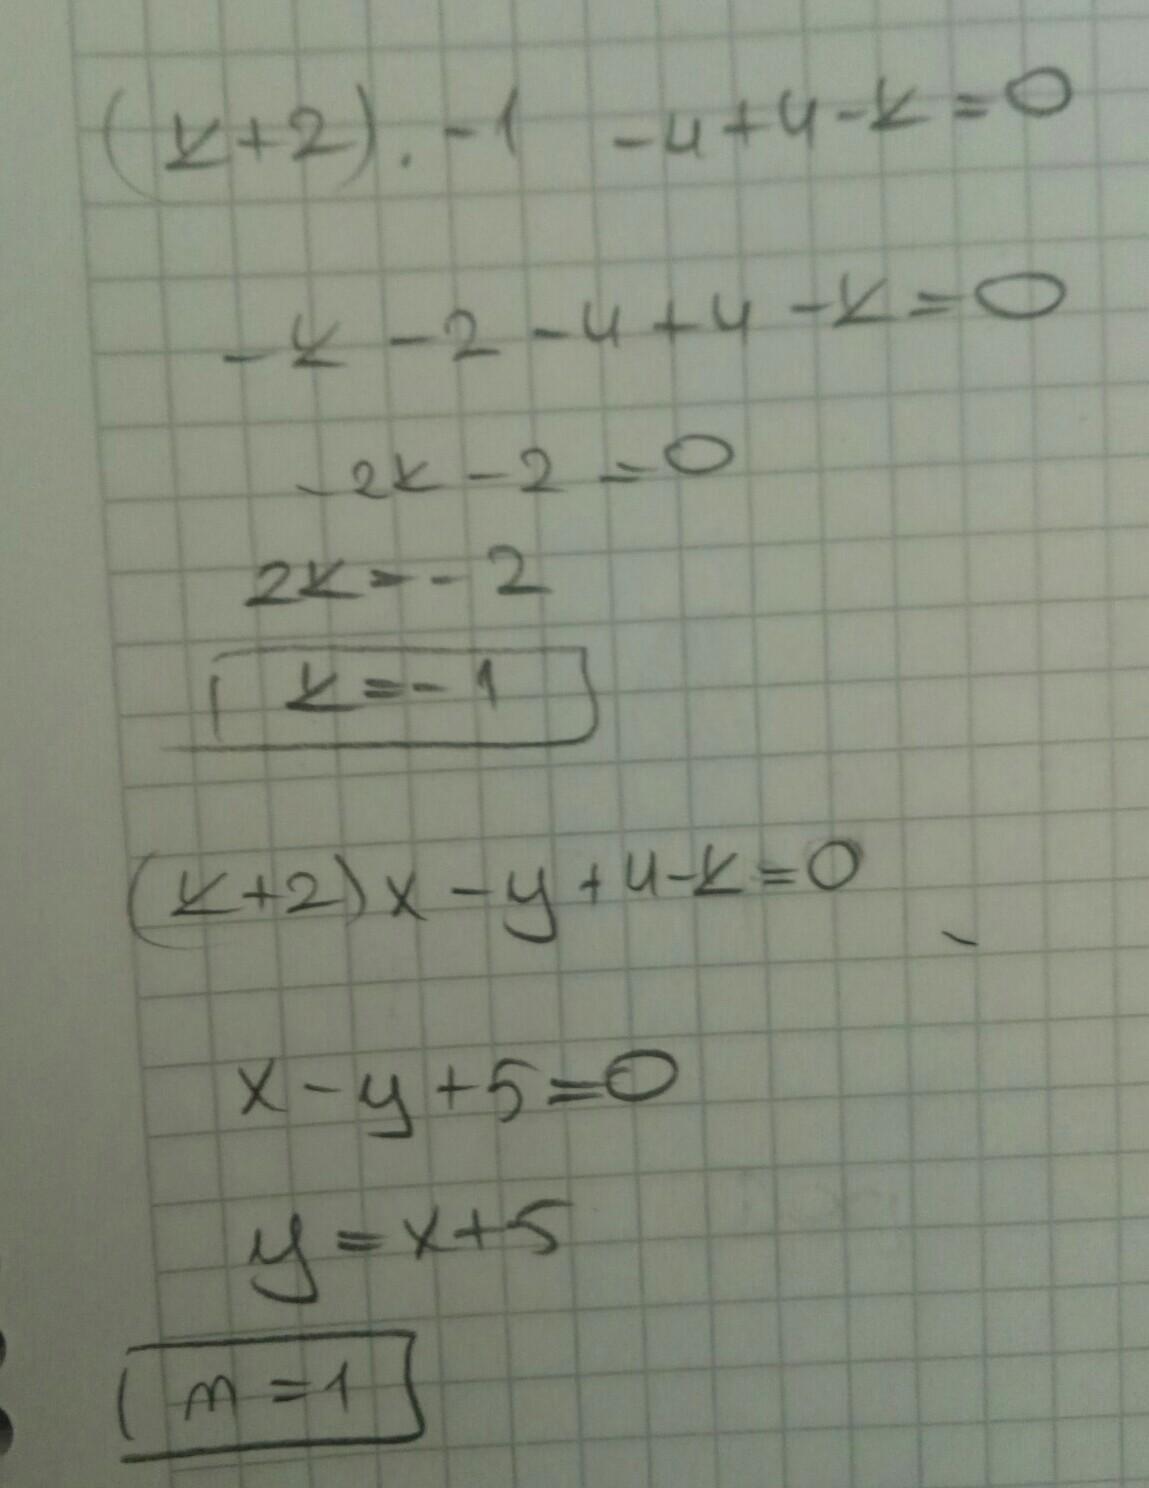 (k+2).-1 -4+4-k=0
-k-2-4+4-k=0
-2k-2=0
2k=-2
k=-1
(k+2)x-y+4-k=0
x-y+5=0
y=x+5
m=1